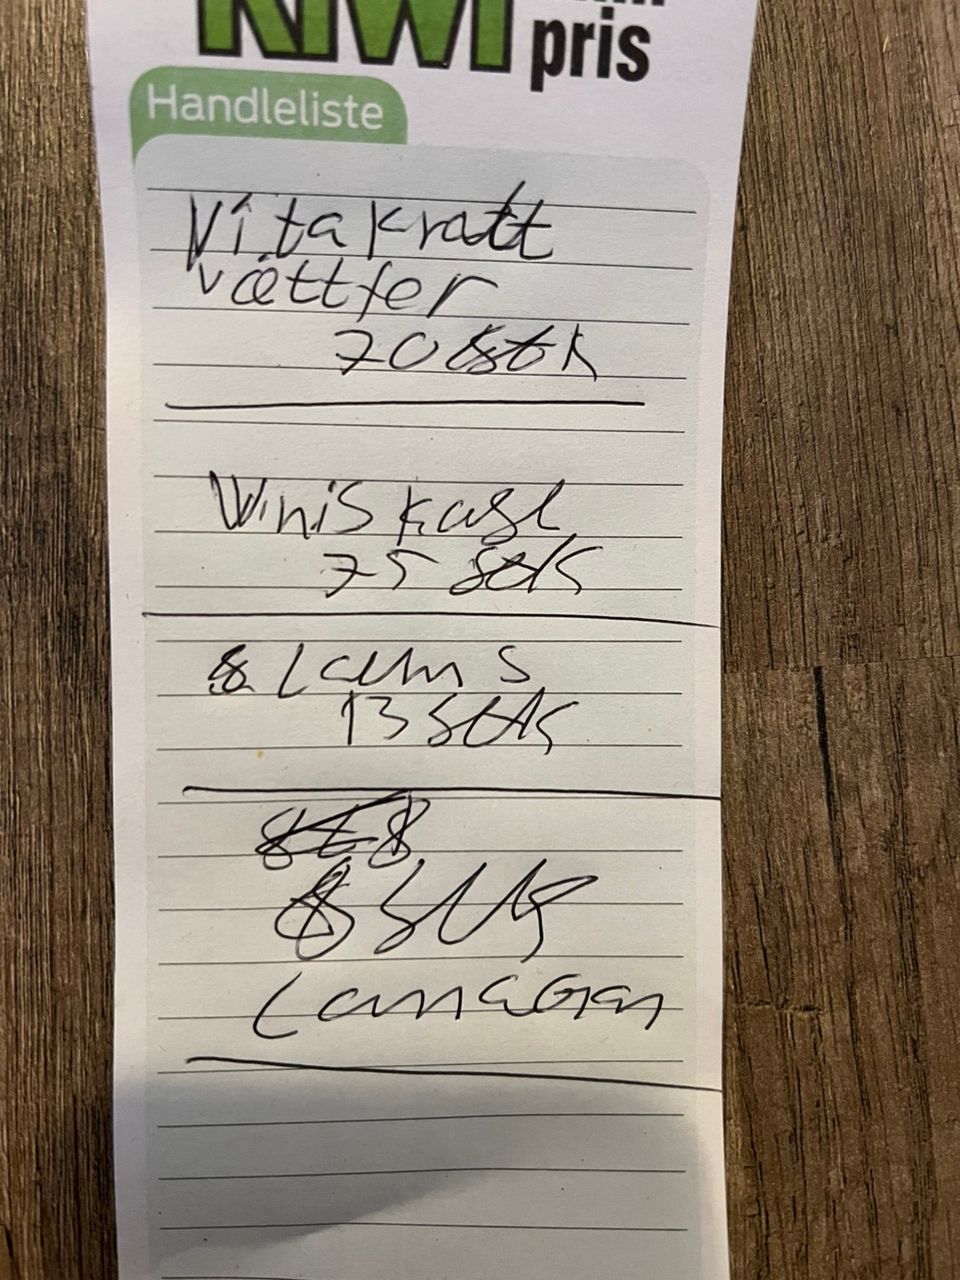 KIWI
pris
Handleliste
Vitakratt
vættfer
70 stk
Winiskasl
75 stk
Laums
13 stk
8 stk